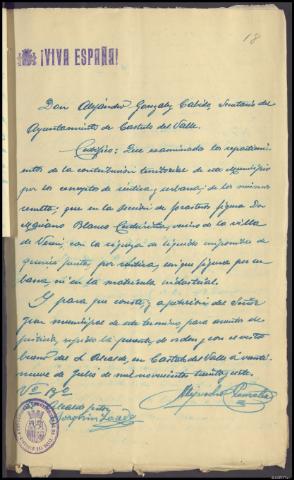 18
¡VIVA ESPAÑA!
Don Alejandro Gonzalez Cabido Secretario del
Ayuntamiento de Castrelo del Valle.
Certifico: Que examinados los repartimi
entos de la contribución territorial de este Municipio
por los conceptos de rústica, urbana, de los mismos
resulta, que en la sección de forasteros figura Don
Blanco vecino de la villa
de Verin, con la riqueza de líquido imponible de
por rústica, sin que figure por ur
bana ni en la matricula industrial.
Y para que conste, a petición del Señor
Juez municipal de este termino para asuntos de
justicia, expido la presente de orden y con el visto
bueno del Sr Alcalde, en Castrelo del Valle a veinti
nueve de Julio de mil novecientos treinta y siete.
Vº Bº
El Alcalde
Alejandro Gonzalez
Joaquin